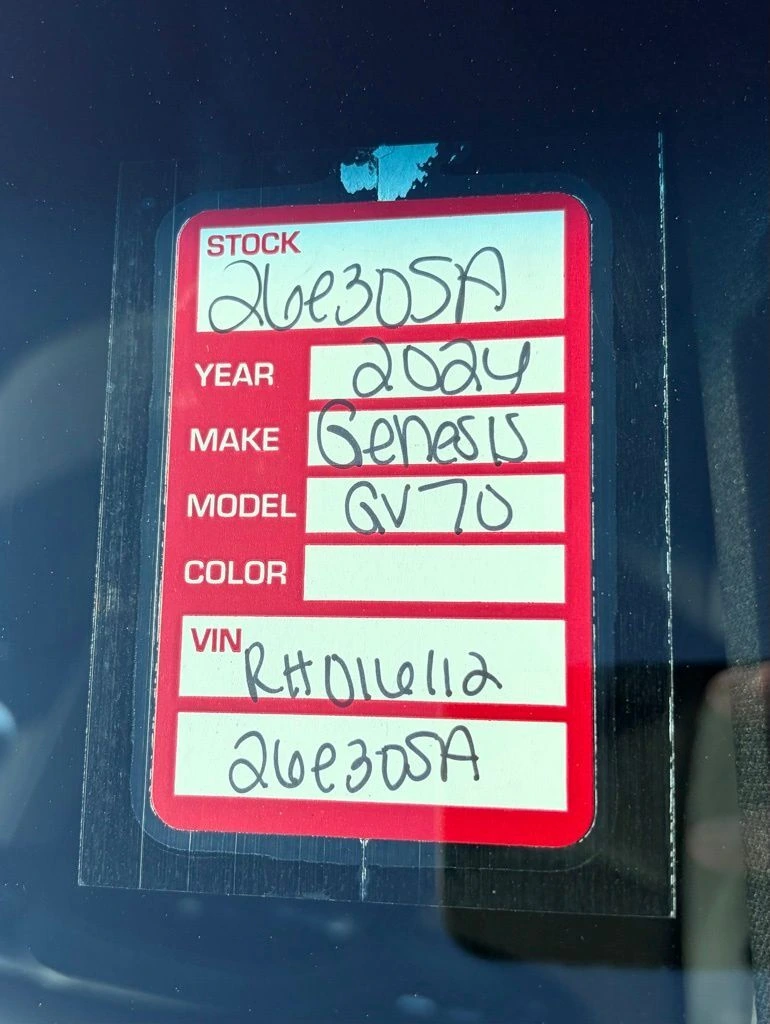 STOCK
26e305A
YEAR 2024
MAKE Genesis
MODEL GV70
COLOR
VIN RH016112
26e305A